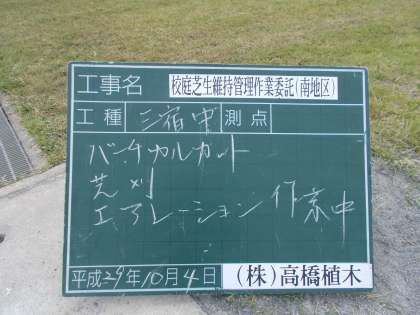 工事名 校庭芝生維持管理作業委託(南地区)
工種 三宿中 測点
バーチカルカット
芝刈
エアレーション 作業中
平成29年10月4日 (株)高橋植木